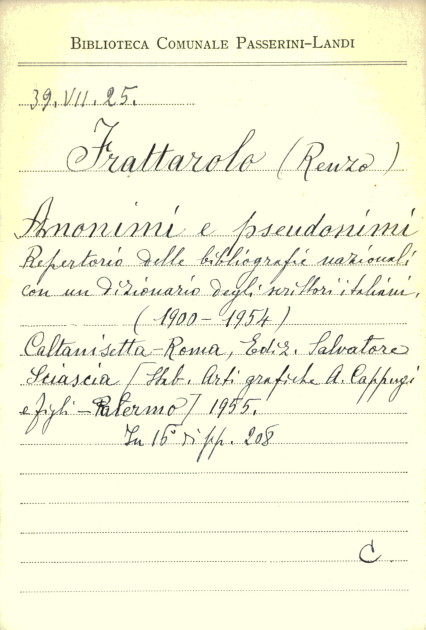 BIBLIOTECA COMUNALE PASSERINI-LANDI
39.VII.25.
Frattarolo (Renzo)
Anonimi e pseudonimi
Repertorio delle bibliografie nazionali
con un dizionario degli scrittori italiani.
(1900-1954)
Caltanisetta-Roma, Ediz. Salvatore
Sciascia [Stab. Arti grafiche A. Cappugi
e figli - Palermo] 1955.
In 16° di pp. 208
C.